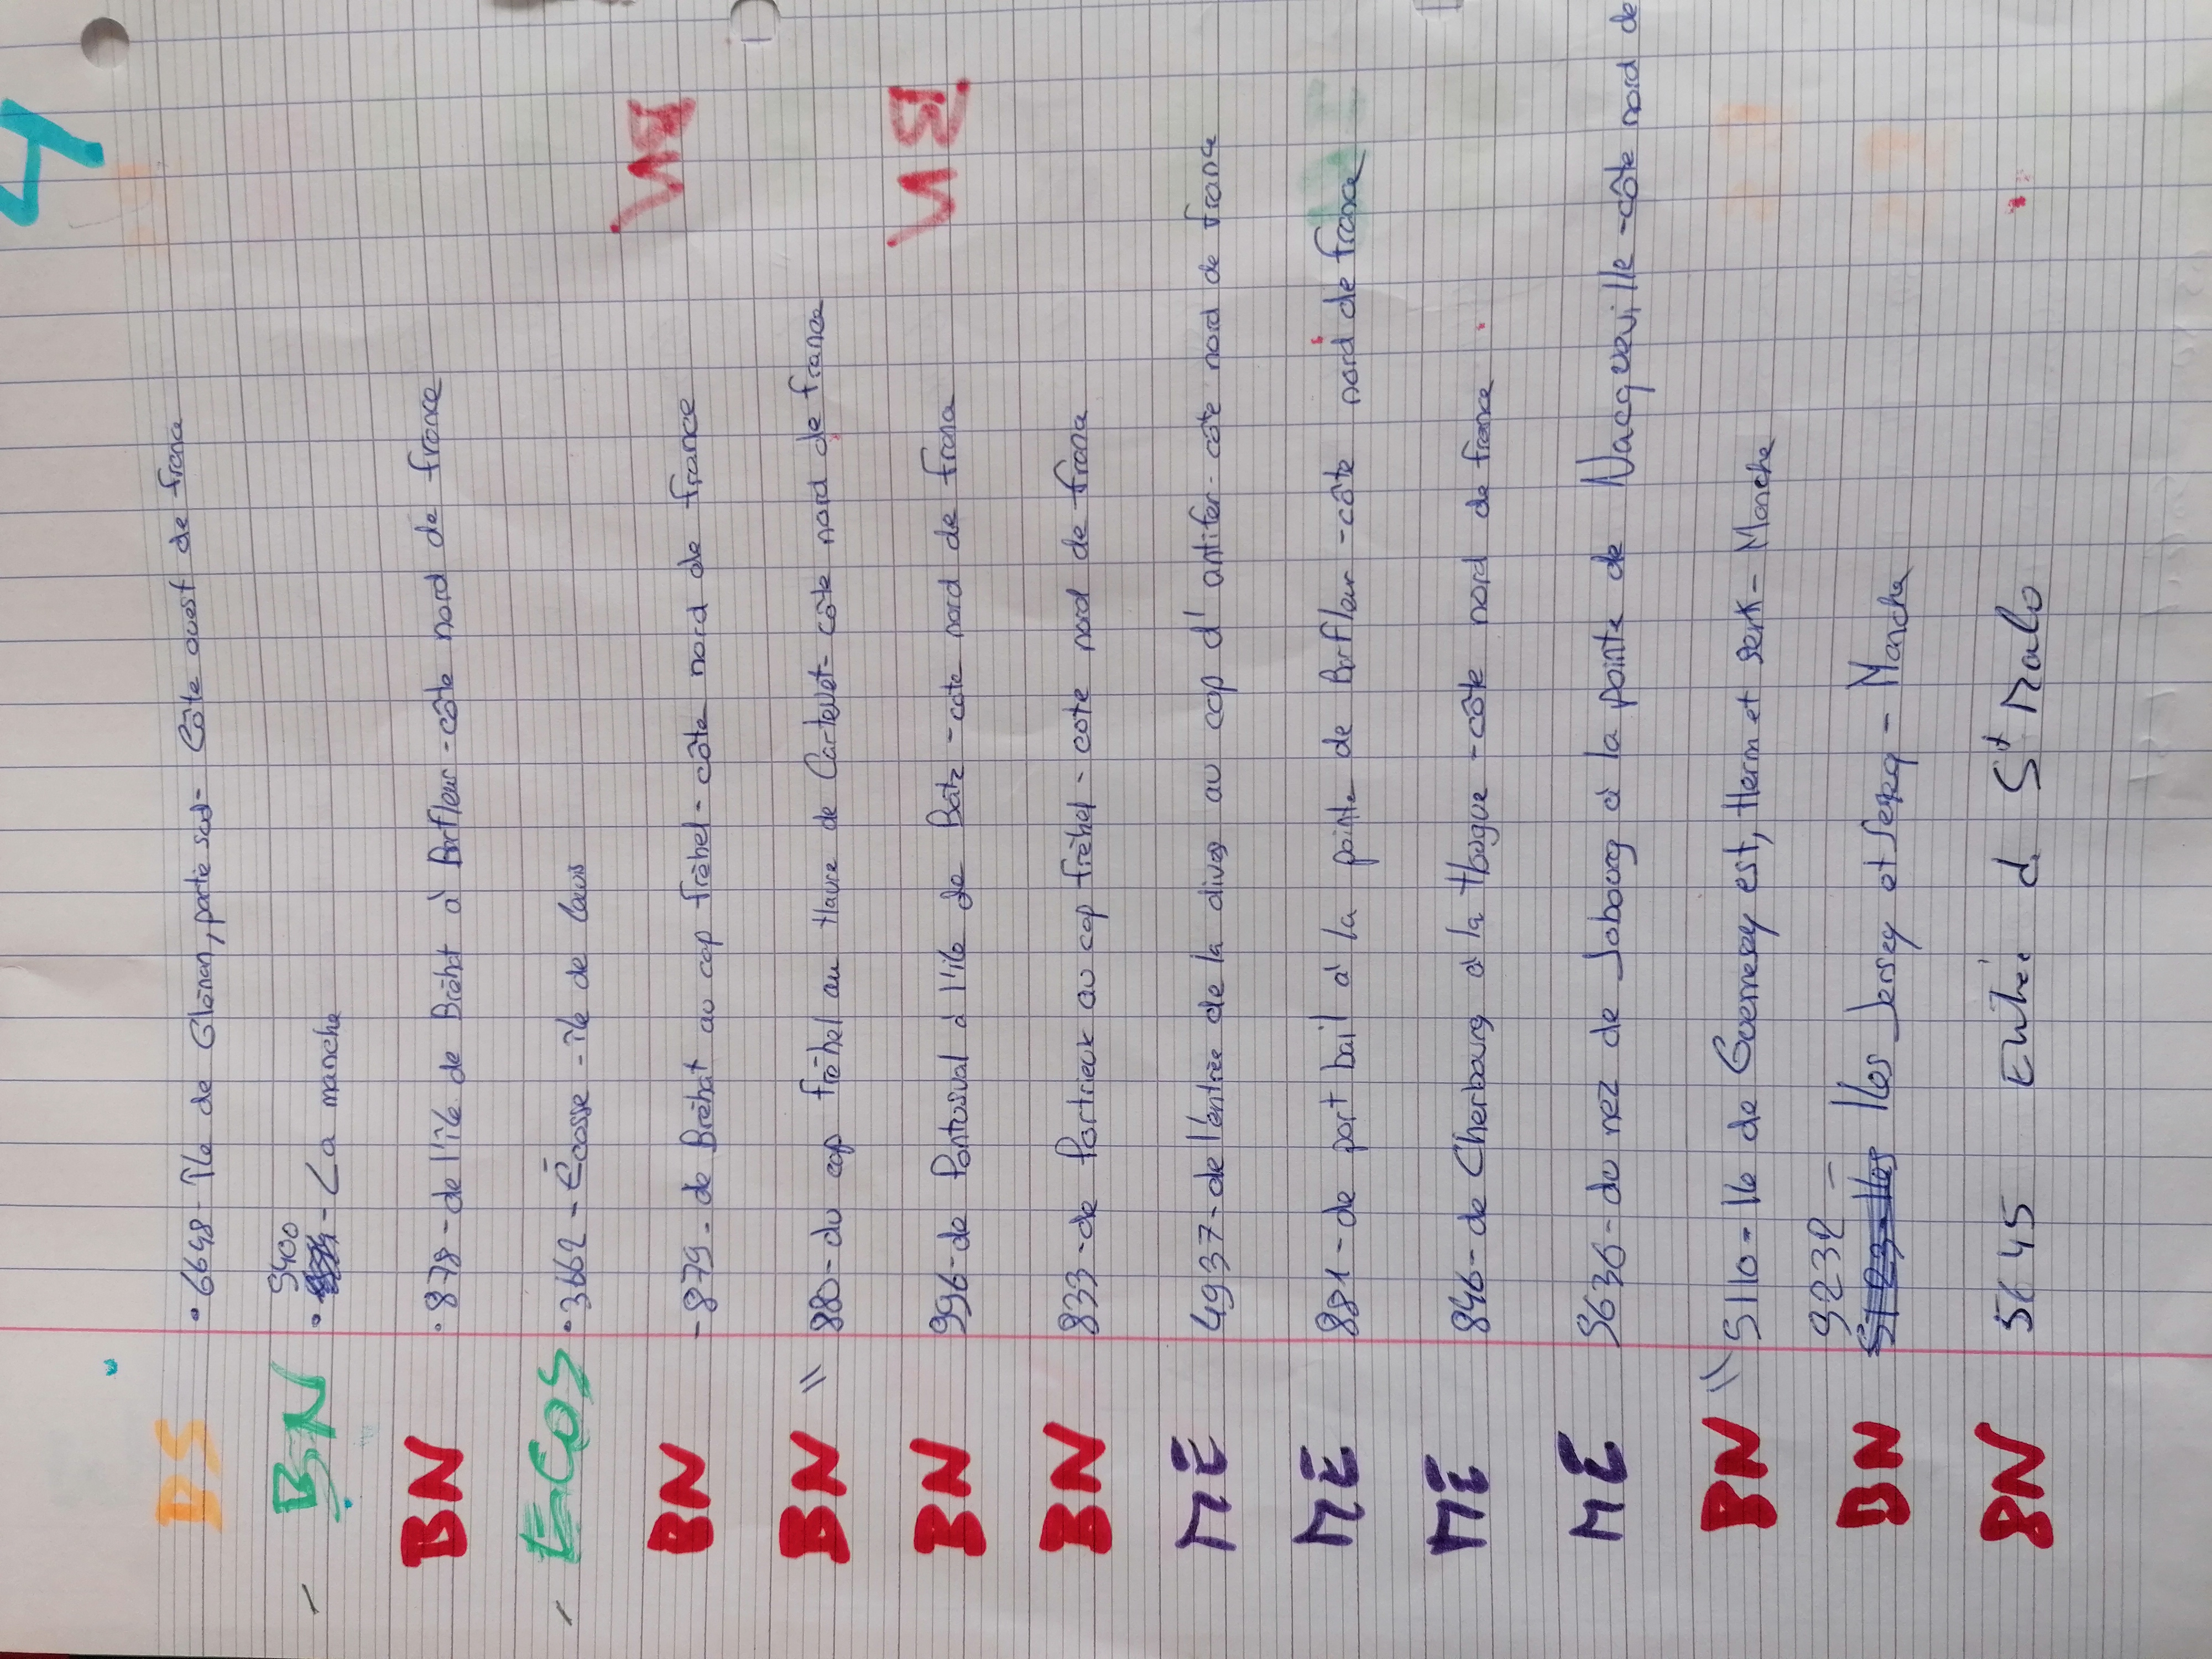 4
BS • 6648 - île de Glénan, partie sud - Côte ouest de france
BN • 5400 - La manche
BN • 878 - de l'île de Bréhat à Barfleur - côte nord de france
ECOS • 3662 - Écosse - île de lewis
BN - 879 - de Bréhat au cap fréhel - côte nord de france
BN " 880 - du cap fréhel au Havre de Carteret - côte nord de france
BN 996 - de Pontusval à l'île de Batz - côte nord de france
BN 833 - de Portrieux au cap fréhel - cote nord de france
ME 4937 - de l'entrée de la dives au cap d'antifer - côte nord de france
ME 881 - de port bail à la pointe de Barfleur - côte nord de france
ME 846 - de Cherbourg à la Hougue - côte nord de france
ME 5636 - du nez de Jobourg à la pointe de Nacqueville - côte nord de
BN " 5110 - Ile de Guernesey est, Herm et serk - Manche
BN 9232 - Iles Jersey et Sercq - Manche
BN 5645 Entrée d St Malo